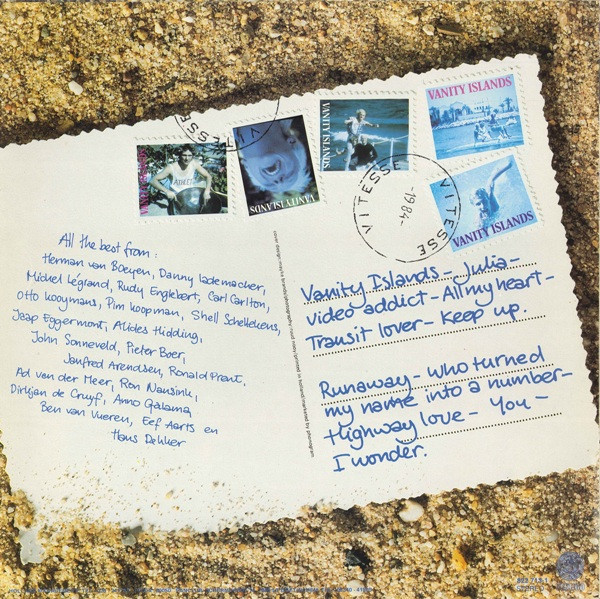 VITESSE
VITESSE
-1984-
VITESSE
VANITY ISLANDS
VANITY ISLANDS
VANITY ISLANDS
VANITY ISLANDS
All the best from:
Herman van Boeyen, Danny Lademacher,
Michel Légrand, Rudy Englebert, Carl Carlton,
Otto Kooymans, Pim Koopman, Shell Schellekens,
Jaap Eggermont, Alides Hidding,
John Sonneveld, Pieter Boer,
Janfred Arendsen, Ronald Prent,
Ad van der Meer, Ron Nausink,
Dirkjan de Cruyf, Anno Galama,
Ben van Vueren, Eef Aarts en
Hans Dekker
Vanity Islands - Julia -
video addict - All my heart -
Transit lover - keep up.
Runaway - who turned
my name into a number -
Highway love - You -
I wonder.